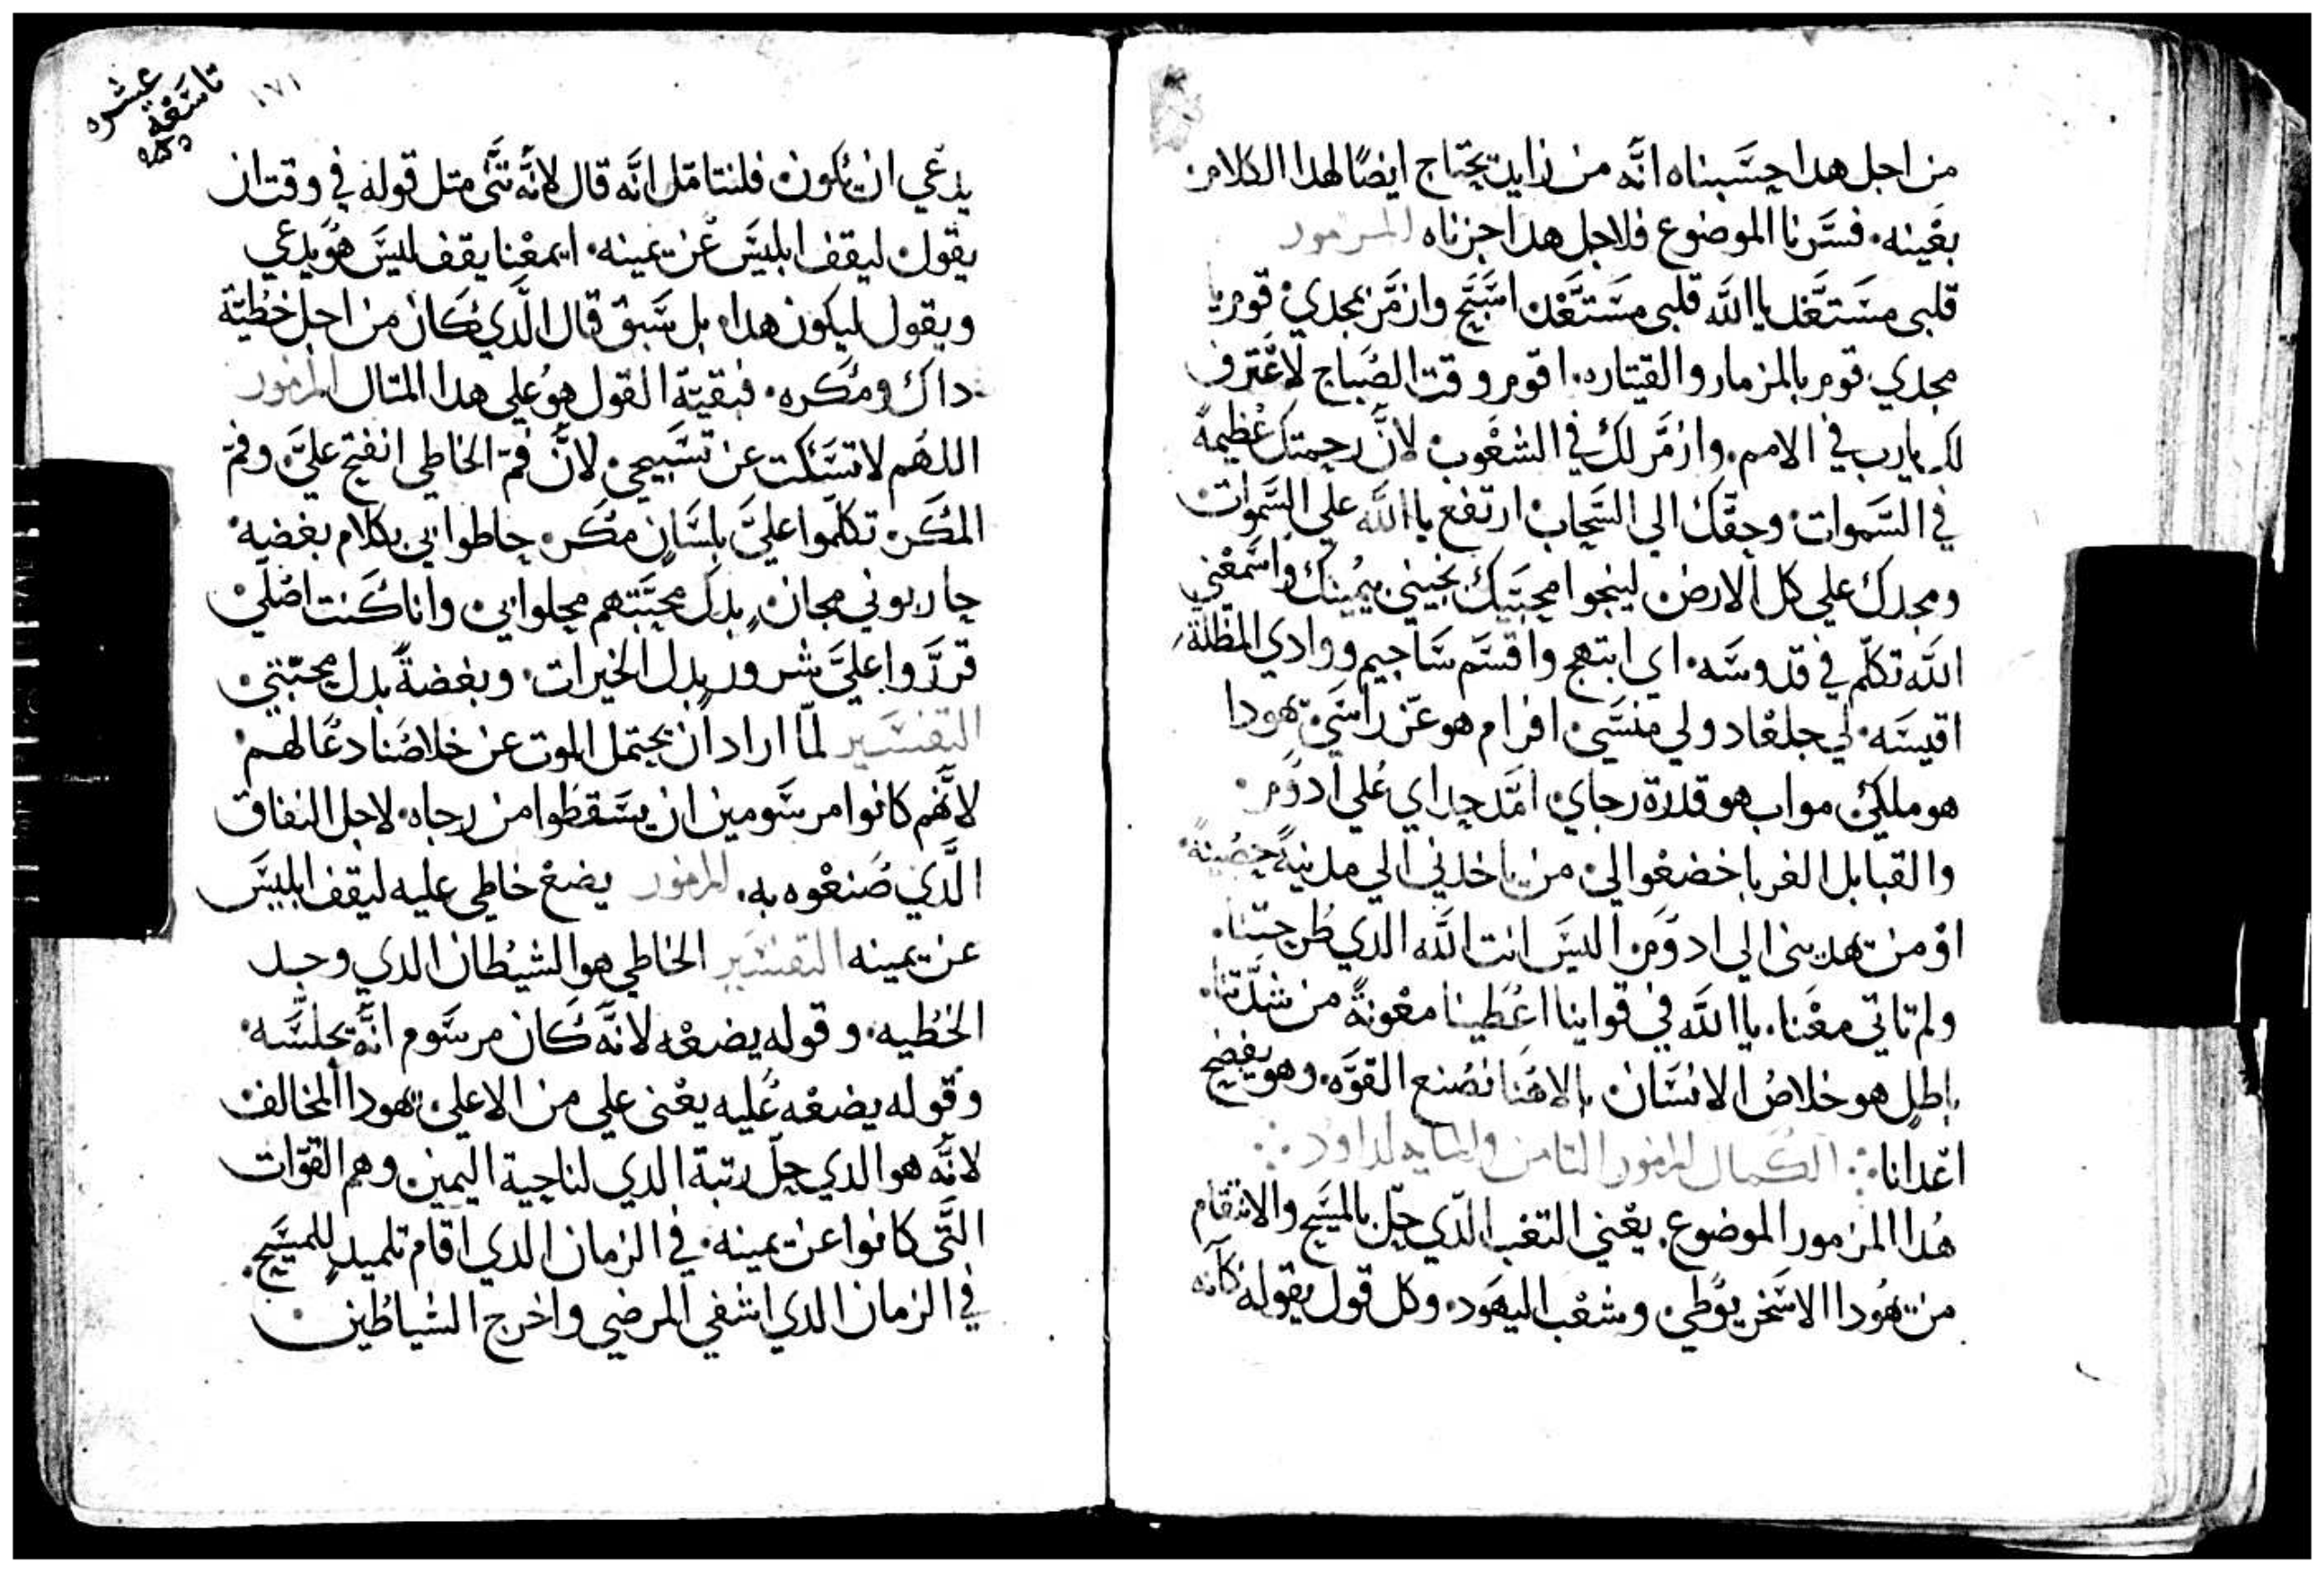 من اجل هدا حسبناه انه من زايد يحتاج ايضًا لهدا الكلام
بعينه. فسرنا الموضوع فلاجل هدا جزناه المزمور
قلبي مستعد ياالله قلبي مستعد اسبح وازمر بمجدي قوم يا
مجدي قوم بالمزمار والقيتاره. اقوم وقت الصباح لاعترف
لك يارب في الامم. وازمر لك في الشعوب لان رحمتك عظيمة
في السموات وحقك الي السحاب ارتفع ياالله علي السموات
ومجدك علي كل الارض لينجوا محبيك نجيني بيمينك واسمعني
الله تكلم في قدوسه. اي ابتهج واقسم ساجيم ووادي المظلة
اقيسه. لي جلعاد ولي منسي افرام هو عز راسي يهودا
هو ملكي مواب هو قدرة رجاي امد حداي علي ادوم
والقبايل الغربا خضعوا لي من ياخدني الي مدينة حصينة
او من يهديني الي ادوم اليس انت الله الدي طرحتنا.
ولم تاتي معنا. ياالله في قواينا اعطينا معونة من شدتنا.
باطل هو خلاص الانسان بالاهنا نصنع القوه. وهو يفضح
اعدانا الكمال المزمور التامن والمايه لداود
هدا المزمور الموضوع. يعني التعب الدي حل بالمسيح والانتقام
من يهودا الاسخريوطي وشعب اليهود. وكل قول يقوله كانه
تاسعة
عشره
١٧١
يدعي ان يكون فلنتامل انه قال لانه تني متل قوله في وقت ان
يقول ليقف ابليس عن يمينه. ايمعنا يقف ليس هو يدعي
ويقول ليكون هدا. بل سبق قال الدي كان من اجل خطية
داك ومكره. فبقية القول هو علي هدا المتال المزمور
اللهم لا تسكت عن تسبيحي لان فم الخاطي انفتح علي وفم
المكر تكلموا علي بلسان مكر حاطوا بي بكلام بغضيه
حاربوني مجان بدل محبتهم محلوا بي وانا كنت اصلي
قرروا علي شرور بدل الخيرات وبغضة بدل محبتي
التفسير لما اراد ان يحتمل الموت عن خلاصنا دعا لهم
لانهم كانوا مرسومين ان يسقطوا من رجاه. لاجل النفاق
الدي صنعوه به. المزمور يضع خاطي عليه ليقف ابليس
عن يمينه التفسير الخاطي هو الشيطان الدي وجد
الخطيه. وقوله يضعه لانه كان مرسوم انه يجلسه
وقوله يضعه عليه يعني علي من الاعلي يهودا المخالف
لانه هو الدي حل رتبة الدي لناحية اليمين وهم القوات
التي كانوا عن يمينه. في الزمان الدي اقام تلميد للمسيح.
في الزمان الدي اشفي المرضي واخرج الشياطين